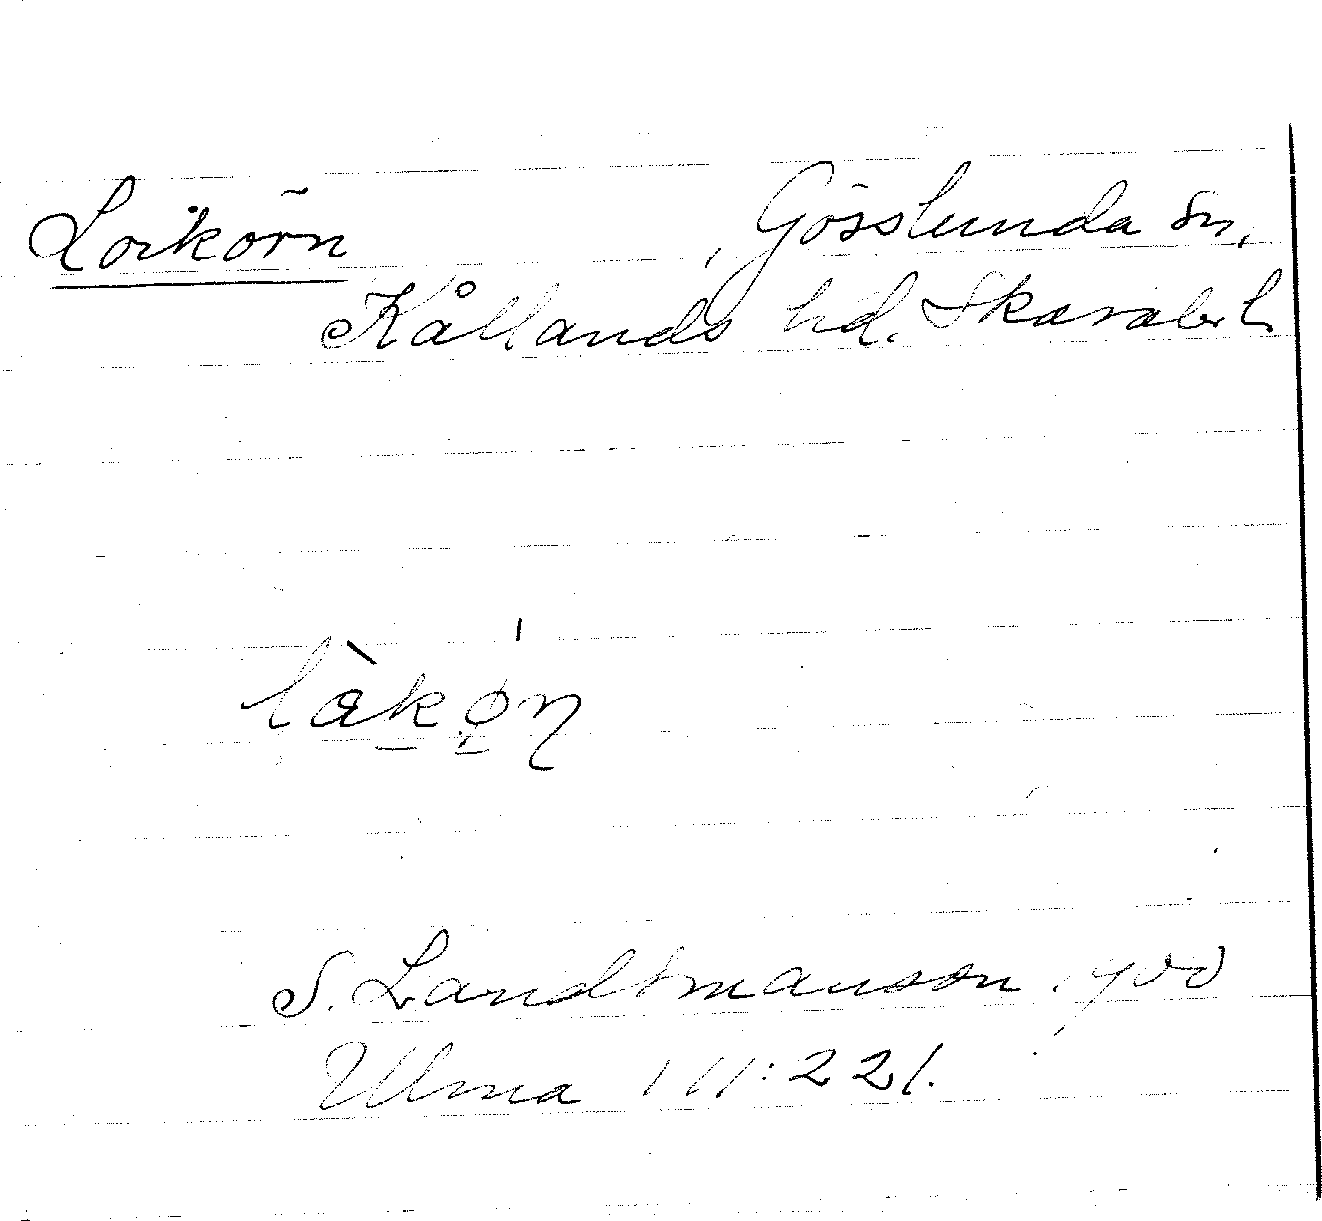 Loikörn, Gösslunda sn,
Kållands hd. Skarab. l.
làkøn
S. Landtmanson 1900
Ulma 111:221.